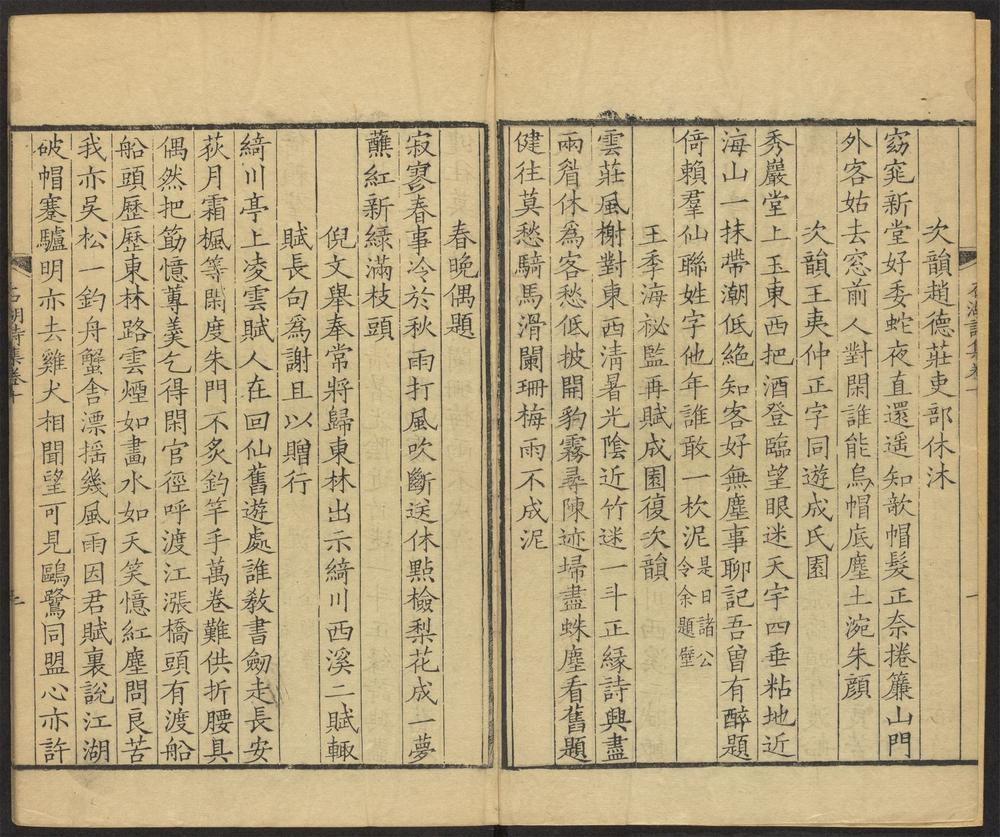 次韻趙德莊吏部休沐
窈窕新堂好委蛇夜直還遥知欹帽髮正奈捲簾山門
外客姑去窓前人對閑誰能烏帽底塵土涴朱顔
次韻王夷仲正字同遊成氏園
秀巖堂上玉東西把酒登臨望眼迷天宇四垂粘地近
海山一抹帶潮低絶知客好無塵事聊記吾曾有醉題
倚賴羣仙聯姓字他年誰敢一杴泥
是日諸公
令余題壁
王季海祕監再賦成園復次韻
雲莊風榭對東西清暑光陰近竹迷一斗正緣詩興盡
兩眉休為客愁低披開豹霧尋陳迹埽盡蛛塵看舊題
健往莫愁騎馬滑闌珊梅雨不成泥
石湖詩集卷十
春晚偶題
寂寥春事冷於秋雨打風吹斷送休點檢梨花成一夢
蘸紅新綠滿枝頭
倪文舉奉常將歸東林出示綺川西溪二賦輙
賦長句為謝且以贈行
綺川亭上凌雲賦人在回仙舊遊處誰教書劒走長安
荻月霜楓等閑度朱門不炙釣竿手萬卷難供折腰具
偶然把筯憶蓴羹乞得閑官徑呼渡江漲橋頭有渡船
船頭歷歷東林路雲煙如畫水如天笑憶紅塵問良苦
我亦吳松一釣舟蟹舎漂揺幾風雨因君賦裏說江湖
破帽蹇驢明亦去雞犬相聞望可見鷗鷺同盟心亦許
石湖詩集卷十